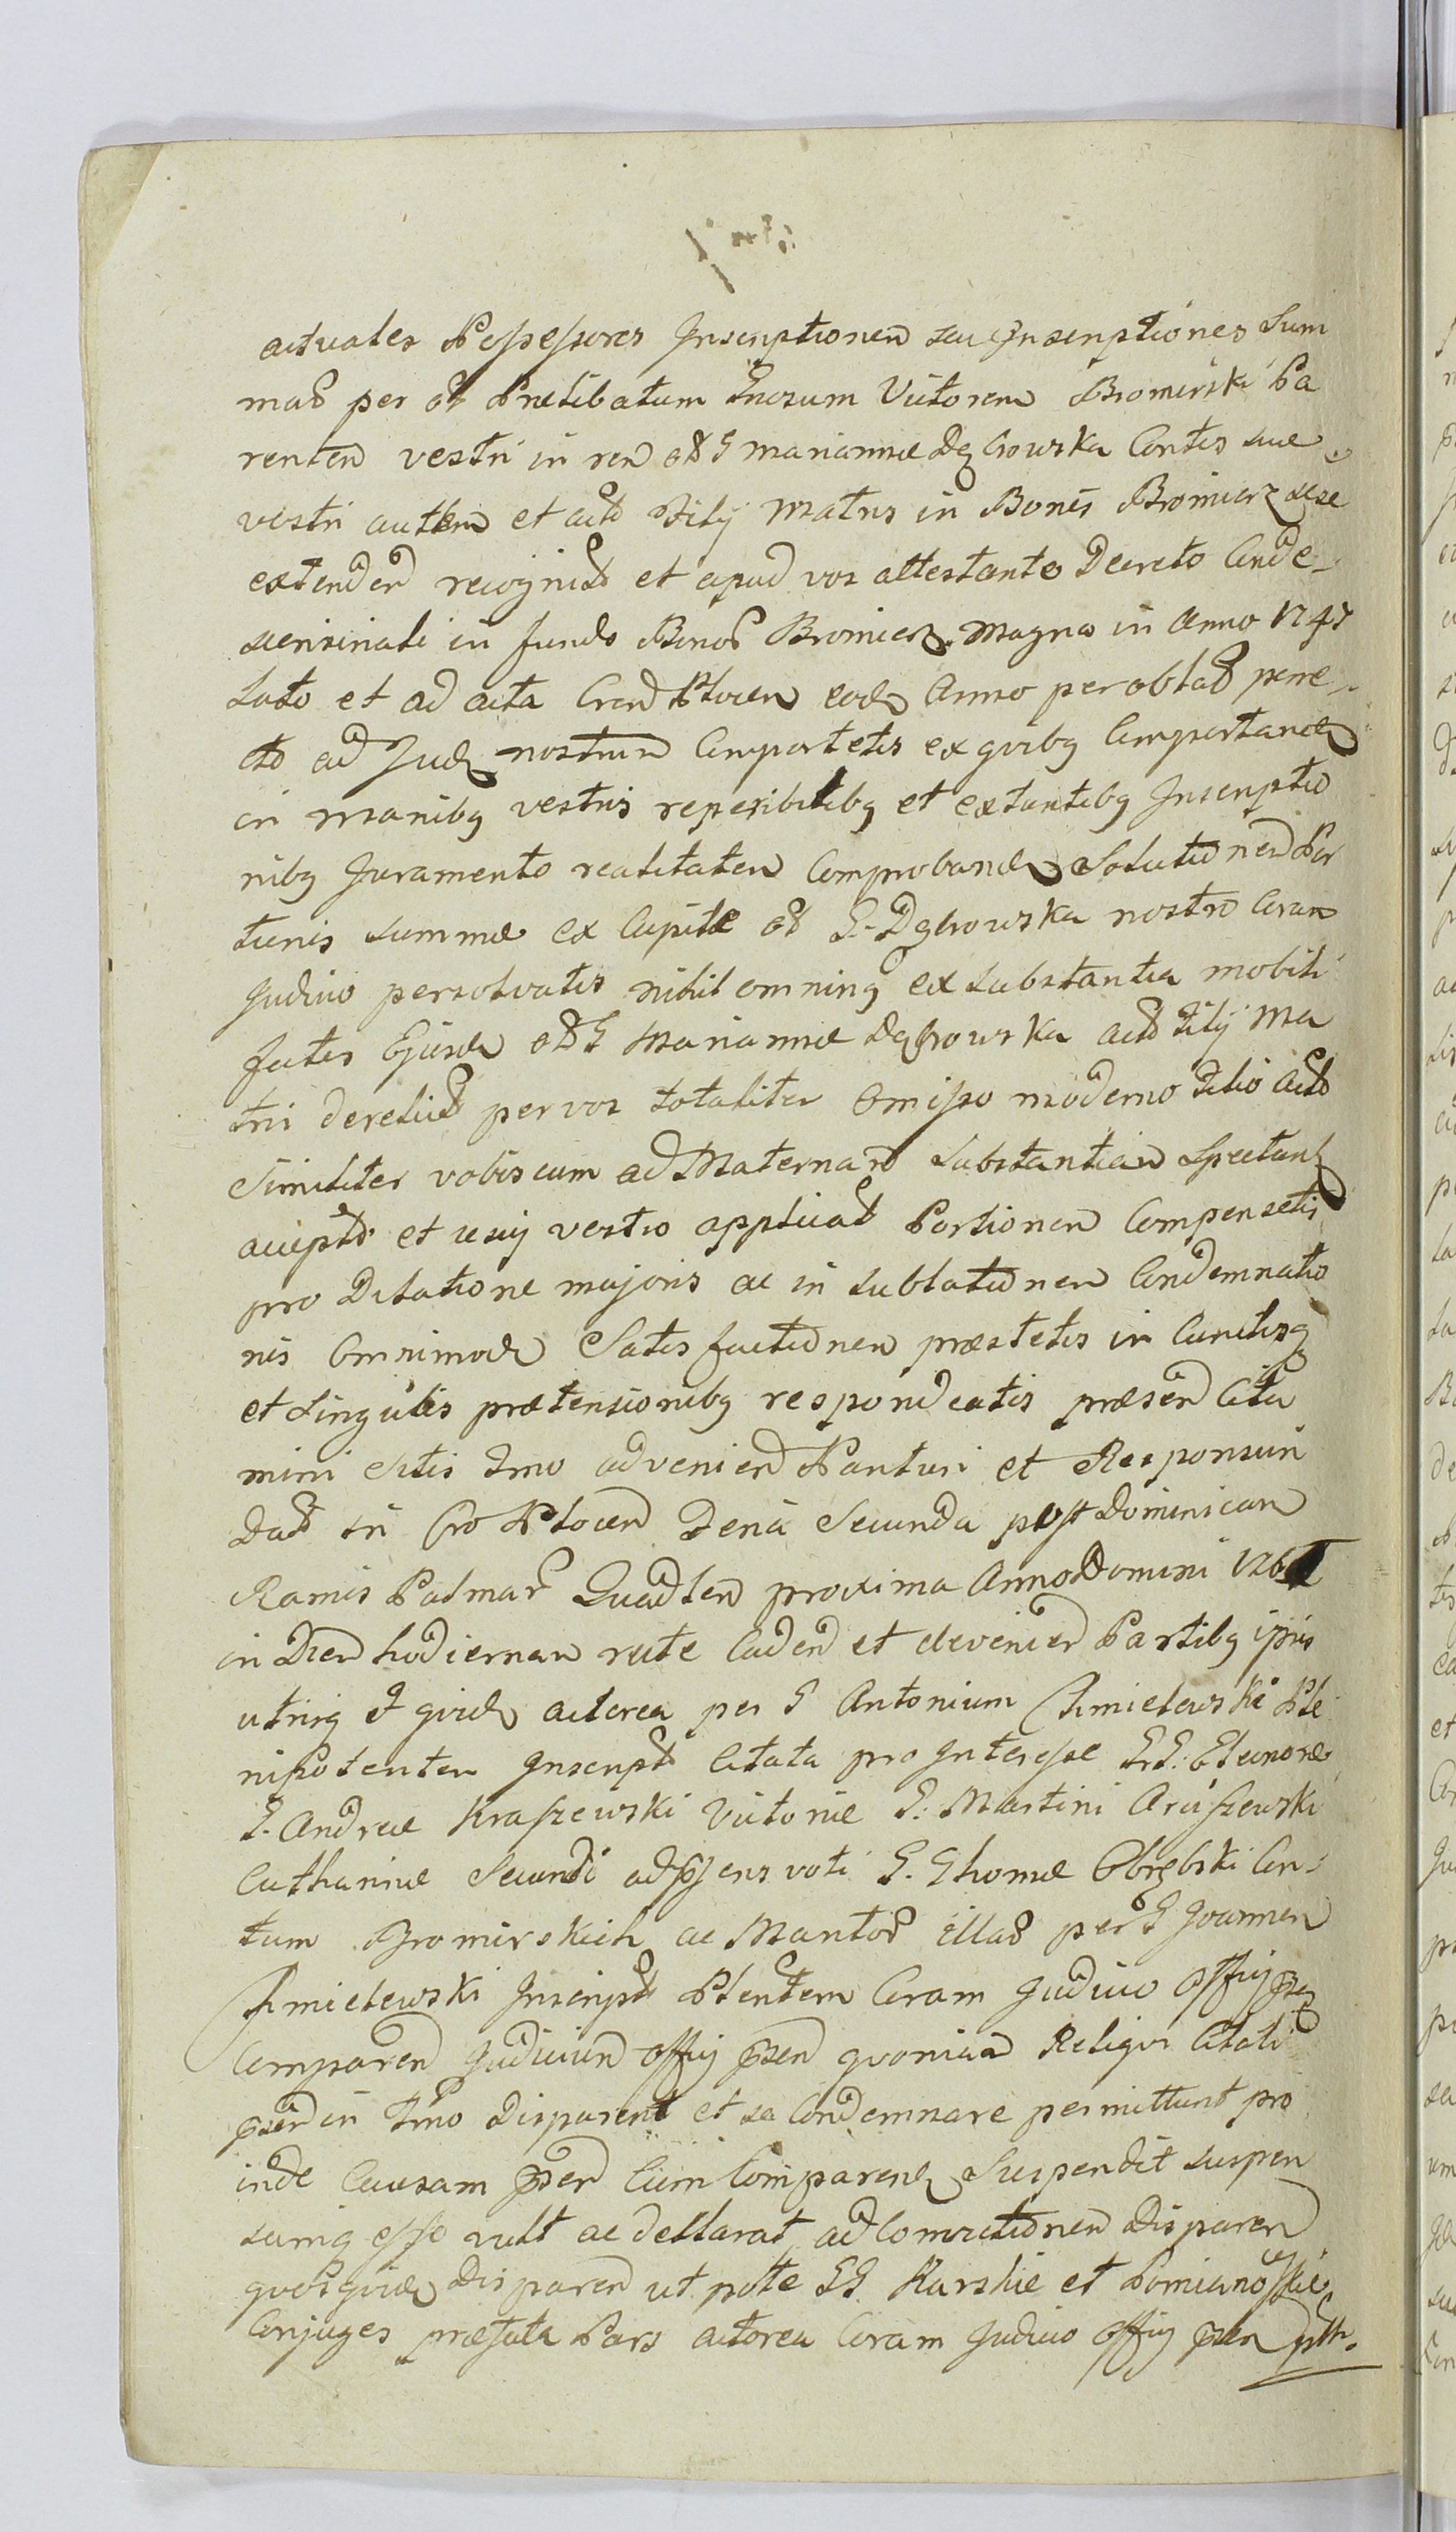 actuales Possessores Inscriptionem seu Inscriptiones Sum
mas per ol Prælibatum Gnosum Victorem Bromirski Pa
rentem vestri in rem ol G Mariannæ Dąbrowska Contis suæ
vestri autem et acto Filij Matris in Bonis Bromierz sese
extenden recognit et apud vos attestante Decreto Conde-
scensinali in fundo Bonor Bromierz Magna in Anno 1747
Lato et ad acta Cren Plocen eodem Anno per oblat porre-
cto ad Jud nostrum Comportetis ex quibq Comportand
in manibq vestris reperibilibq et extantibq Inscriptio
nibq Juramento realitatem Comproband Solutionem Por
tionis summæ ex Capite ol G. Dąbrowska nostro Coram
Judicio persolvatis nihil omninq ex substantia mobili
fatis Ejusd ol G Mariannæ Dąbrowska acto Filij Ma
tri derelict per vos totaliter Omisso moderno Filio Acto
Similiter vobiscum ad Maternam Substantiam Spectant
accepto et usuj vestro applicat Portionem Compensetis
pro Dilatione majoris ac in sublationem Condemnatio
nis Omnimod Satisfactionem præstetis in Cunctisq
et Singulis prætensionibq respondeatis præsen Cita
mini Sitis Tmo advenien Parituri et Responsuri
Dat in Cro Plocen Feria Secunda post Dominicam
Ramis Palmar Quadlen proxima Anno Domini 176
in Diem hodiernam recte Caden et devenien Partibq ipsis
utrisq et quid actorea per G Antonium Chmielewski Ple
nipotentem Inscript Citata pro Interesse GG. Eleonoræ
G. Andreæ Kraszewski Victoriæ G. Martini Aruszewski
Catharinæ Secundi ad præsens voti G. Thomæ Obrębski Con-
tum Bromirskich ac Maritor illar per G Joannem
Chmielewski Inscript Plentem Coram Judicio Offij psen
Comparen Judicium Offij psen quoniam Reliqui Citati
psen in Tmo Disparent et se Condemnare permittunt pro
inde Causam psen Cum Comparen Suspendit suspen
samq esse vult ac declarat ad Convictionem Disparen
quosquid Disparen ut pote GG. Karskie et Pomianoskie
Conjuges præfata Pars actorea Coram Judicio Offij psen